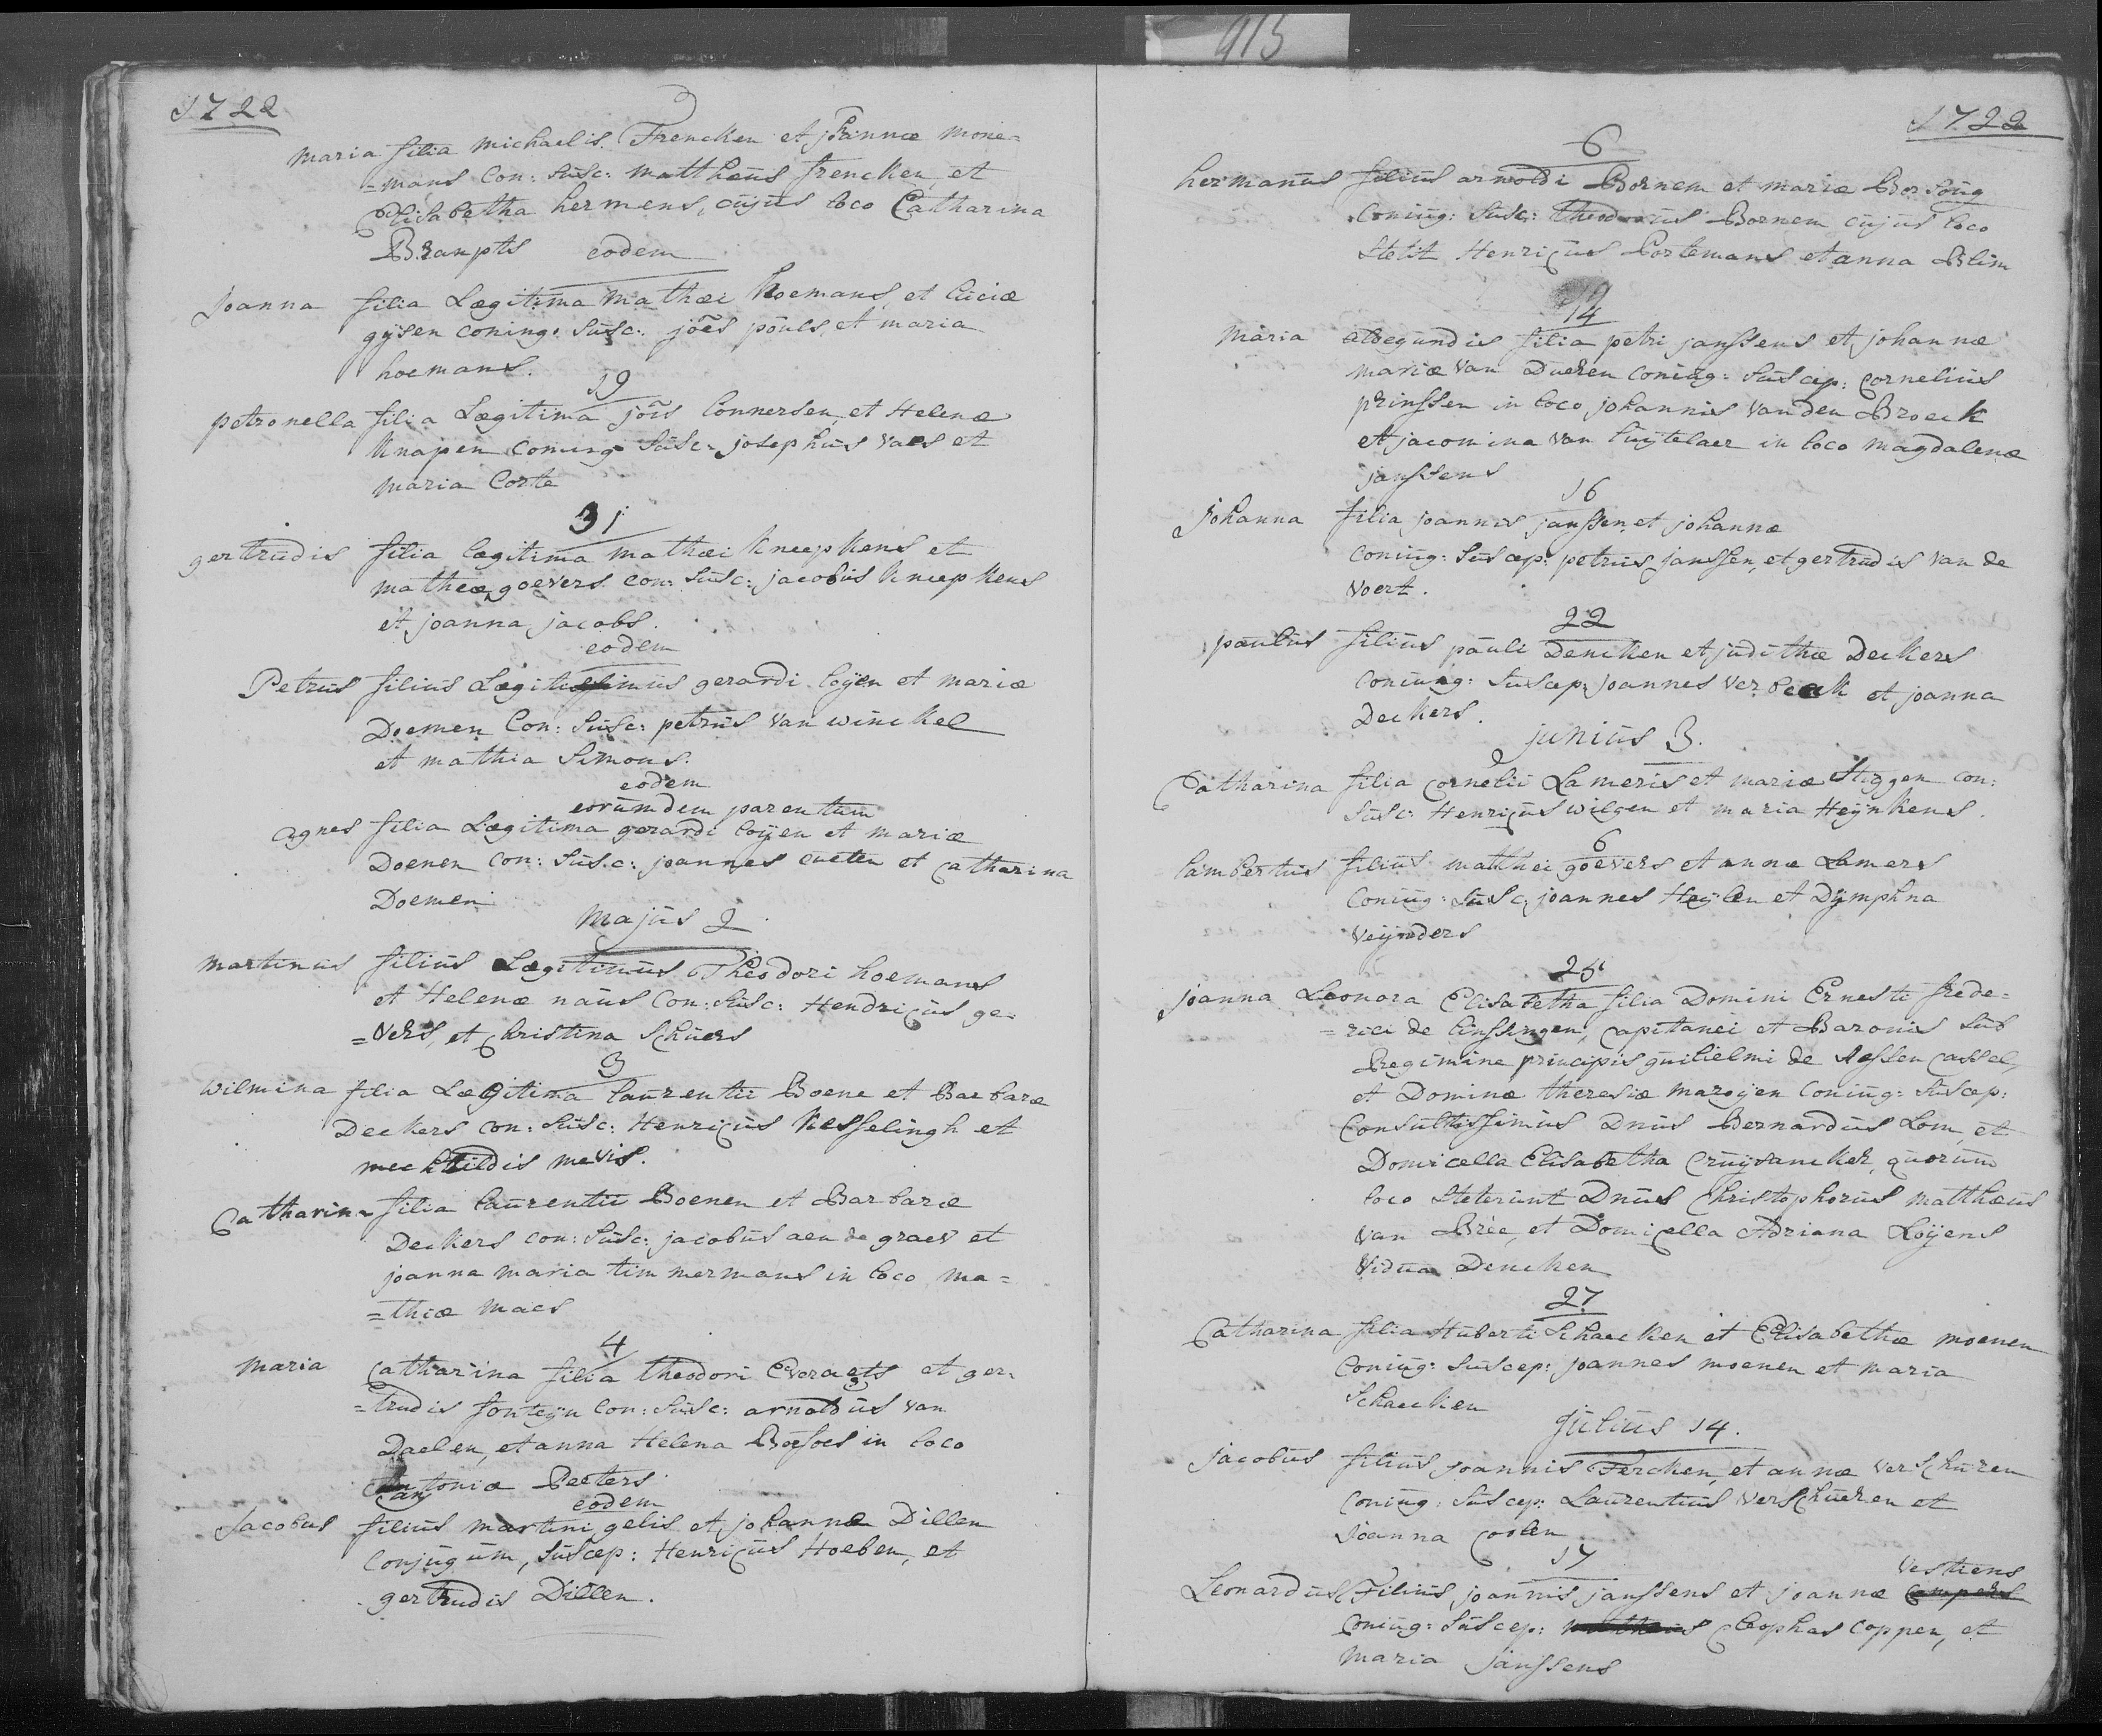 913
1722
maria filia michaelis Frencken et joannæ mone=
=mans con: susc: matthæus frencken, et
Elisabetha hermens, cujus loco Catharina
Branpts eodem
Joanna filia Lægitima mathæi hoemans, et luciæ
gysen coniug: susc: joes pouls, et maria
hoemans.
19
petronella filia Lægitima jois Connersen, et Helenæ
Knapen coniug susc: josephus vaes et
maria Corte
31
gertrudis filia lægitima mathæi Kneepkens et
matheæ goevers con: susc: jacobus Kneepkens
et joanna jacobs.
eodem
Petrus filius Lægitimus gerardi loÿen et mariæ
Doemen Con: susc: petrus van winckel
et mathia Simons.
eodem
eorumdem parentum
agnes filia Lægitima gerardi loÿen et mariæ
Doenen con: susc: joannes et Catharina
Doemen
Majus 2
martinus filius Lægitimus Theodori hoemans
et Helenæ naus Con: susc: Hendricus ge=
=vers, et Christina Schuers
3
Wilmina filia Lægitima laurentii Boene et Barbaræ
Deckers con: susc: Henricus Kesselingh et
mechtildis mevis.
Catharina filia laurentii Boenen et Barbaræ
Deckers con: susc: jacobus aen de graev et
joanna maria timmermans in loco ma=
=thiæ maes
4
maria Catharina filia theodori Everaets et ger=
=trudis fonteÿn Con: susc: arnoldus van
Daelen, et anna Helena Boesoes in loco
Antoniæ Peeters
eodem
Jacobus filius martini gelis et johannæ Dillen
Conjugum, suscep: Henricus Hoeben, et
gertrudis Dillen.
1722
6
hermanus filius arnoldi Bornem et mariæ Borsoug
Coniug: susc: theodorus Bornem cujus loco
stetit Henricus Portemans et anna Blim
14
Maria aldegundis filia petri janssens et johannæ
mariæ van Dueren coniug: suscep: Cornelius
prinssen in loco johannis van den Broeck
et jacomina van luÿtelaer in loco magdalenæ
janssens
16
Johanna filia joannis janssen et johannæ
Coniug: suscep: petrus janssen, et gertrudis van de
voert.
22
paulus filius pauli Dencken et judithæ Deckers
Coniug: suscep: joannes verbeeck et joanna
Deckers.
junius 3.
Catharina filia Cornelii Lameris et mariæ Steggen con:
susc: Henricus wilgen et maria Heÿnkens.
6
lambertus filius matthei goevers et annæ Lamers
Coniug: susc: joannes Heÿlen et Dÿmphna
veÿnders
25
Joanna Leonora Elisabetha filia Domini Ernesti frede=
=rici de linssingen, Capitanei et Baronis sub
Regimine principis guilielmi de Hessen Cassel,
et Dominæ theresiæ maroÿen Coniug: suscep:
Consultissimus Dnus Bernardus Lom, et
Domicella Elisabetha Cruÿsancker, quorum
loco steterunt Dnus Christophorus matthæus
van Brée, et Domicella Adriana Loÿens
vidua Dencken
27
Catharina filia Huberti Schaecken et Elisabethæ moenen
Coniug: suscep: joannes moenen et maria
Schaecken
Julius 14.
Jacobus filius joannis Fercken, et annæ verschuren
Coniug: suscep: Laurentius verschueren et
Joanna Coolen
17
vestiens
Leonardus Filius joannis janssens et joannæ Campers
Coniug: suscep: Cleophas Coppen, et
Maria janssens